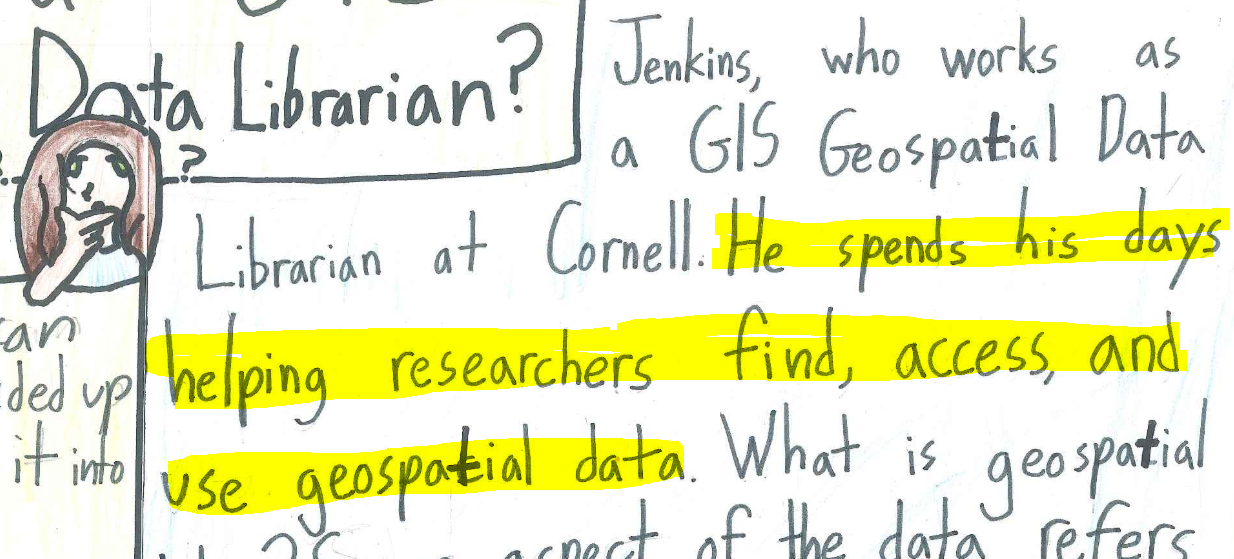 Data Librarian?
?
Jenkins, who works as
a GIS Geospatial Data
Librarian at Cornell. He spends his days
helping researchers find, access, and
use geospatial data. What is geospatial
aspect of the data refers
an
ded up
it into